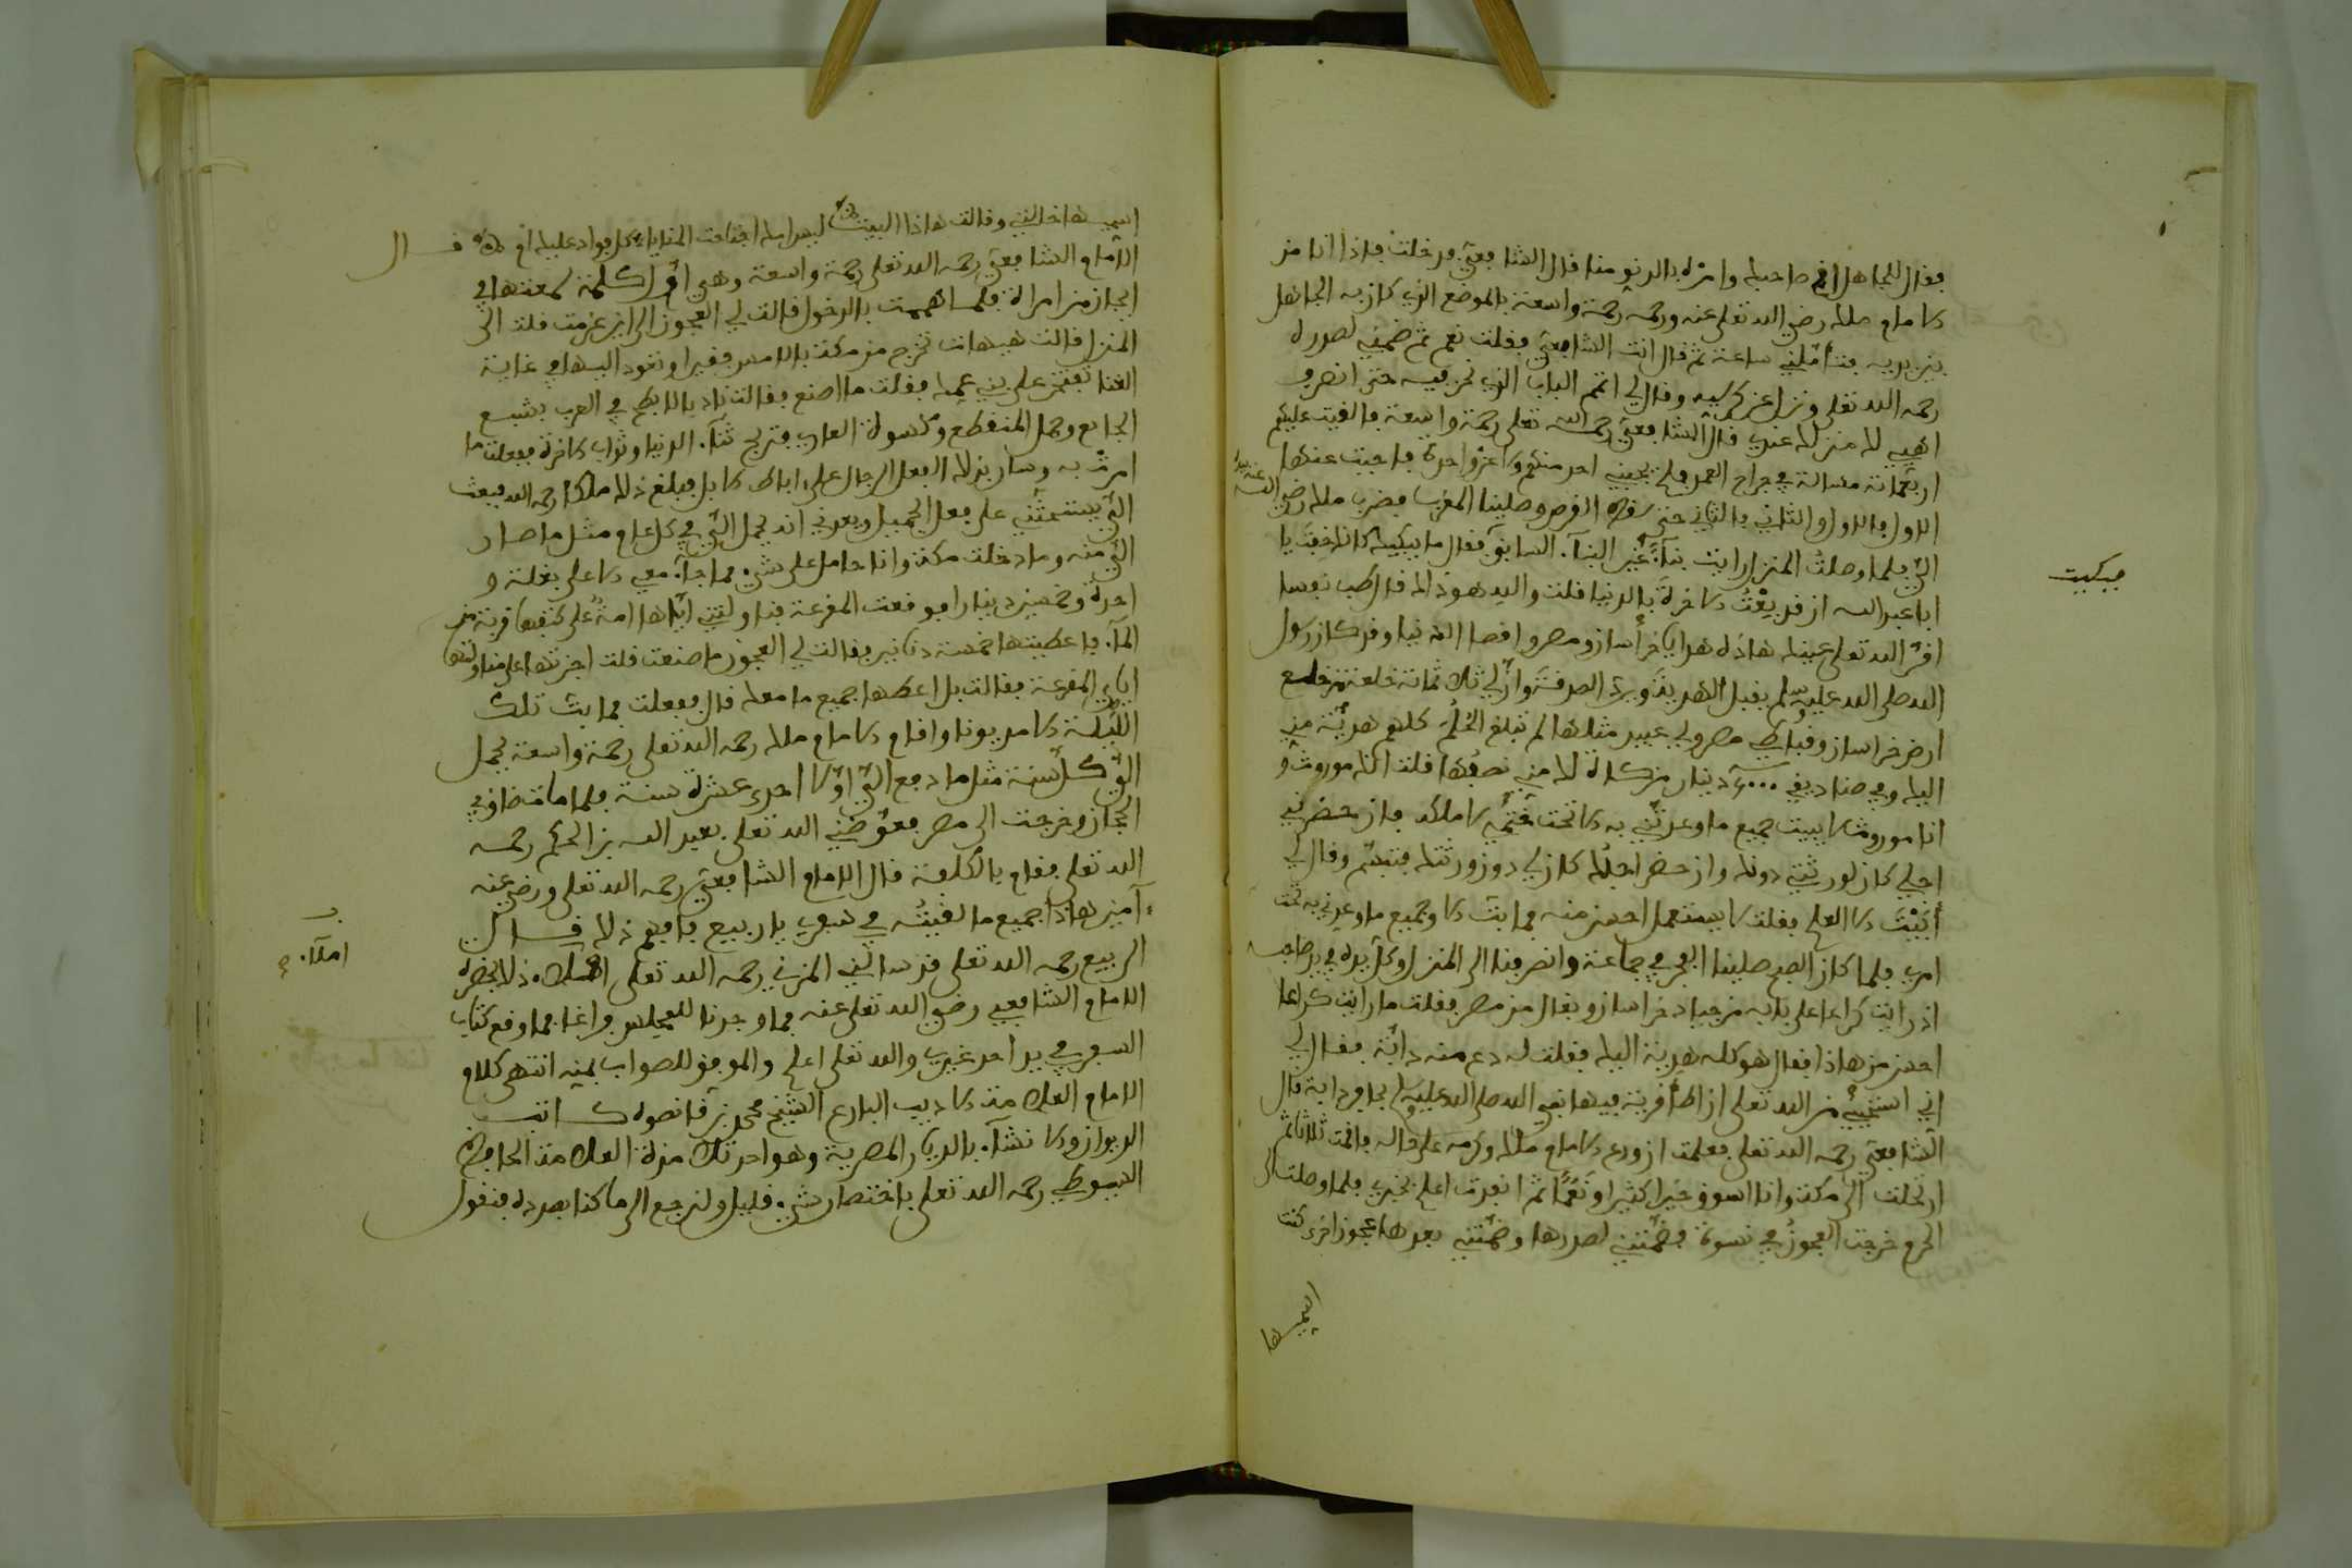 فقال للجاهل انج صاحبك وامره بالدنو منا قال الشافعي فدخلت فاذا انا من
الامام ملك رضي الله تعلى عنه ورحمه رحمة واسعة بالموضع الذي كان به الجاهل
بين يديه فتأملني ساعة ثم قال انت الشافعي فقلت نعم ثم ضمني لصدره
رحمه الله تعلى ونزل عن كرسيه وقال لي اتم الباب الذي نحن فيه حتى انصرف
الى المنزل عندي قال الشافعي رحمه الله تعلى رحمة واسعة فالقيت عليهم
اربعمائة مسالة في جراح العمد فلم يجبني احد منهم ولا عن واحدة فاجبت عنها
الاول بالاول والثاني بالثاني حتى سقط القرص وصلينا المغرب فضرب ملك رضي الله عنه بيده
الي فلما وصلت المنزل رايت بناء غير البناء السابق فقال ما يبكيك كانك خفت يا
ابا عبد الله ان قد بعت الاخرة بالدنيا قلت والله هو ذاك قال طب نفسا
اقر الله تعلى عينك هاذه هدايا خراسان ومصر واقصا الدنيا وقد كان رسول
الله صلى الله عليه وسلم يقبل الهدية ويرد الصدقة وان لي ثلاثمائة خلعة من خلع
ارض خراسان وقباطي مصر ولي عبيد مثلها لم تبلغ الحلم كلهم هدية مني
اليك وفي صناديقي ٥٠٠٠ دينار زكاة لك مني نصفها قلت انك موروث و
انا موروث لا يبيت جميع ما وعدتني به الا تحت ختمي لاملكه فان حضرني
اجلي كان لورثتي دونك وان حضر اجلك كان لي دون ورثتك فتبسم وقال لي
أبيت الا العلم فقلت لا يستعمل احسن منه فما بت الا وجميع ما وعدني به تحت
امري فلما كان الصبح صلينا الفجر في جماعة وانصرفنا الى المنزل وكل يده في يد صاحبه
اذ رايت كراعا على بابه من جياد خراسان وبغال من مصر فقلت ما رايت كراعا
احسن من هاذا فقال هو كله هدية اليك فقلت له دع منه دابة فقال لي
اني استحيي من الله تعلى ان اطأ قرية فيها نبي الله صلى الله عليه وسلم بحافر دابة قال
الشافعي رحمه الله تعلى فعلمت ان ورع الامام ملك وكرمه على حاله فاقمت ثلاثا ثم
ارتحلت الى مكة وانا اسوق خيرا كثيرا ونعما ثم انفدت اعلم بخبري فلما وصلت الى
الحرم خرجت العجوز في نسوة فضمتني لصدرها وضمتني بعدها عجوز اخرى كنت
اسميها
فبكيت
اسميها خالتي وقالت هاذا البيت
ليس امك اجتاحت المنايا كل فواد عليك ام قال
الامام الشافعي رحمه الله تعلى رحمة واسعة وهي اول كلمة سمعتها في
الحجاز من امراة فلما هممت بالدخول قالت لي العجوز الى اين عزمت قلت الى
المنزل قالت هيهات تخرج من مكة بالامس فقيرا وتعود اليها في غاية
الغنا تفتخر على بني عمك فقلت ما اصنع فقالت ناد بالابطح في العرب بشبع
الجائع وحمل المنقطع وكسوة العاري فتربح ثناء الدنيا وثواب الاخرة ففعلت ما
امرت به وسار بذلك الفعل الرجال على اباط الابل فبلغ ذلك ملكا رحمه الله فبعث
الي يستحثني على فعل الجميل ويعدني انه يحمل الي في كل عام مثل ما صار
الي منه وما دخلت مكة وانا حامل على شيء مما جاء معي الا على بغلة و
احدة وخمسين دينارا فوقعت المقرعة فناولتني اياها امة على كتفها قربة من
الماء فاعطيتها خمسة دنانير فقالت لي العجوز ما صنعت قلت اجزتها على مناولتها
اياي المقرعة فقالت بل اعطها جميع ما معك قال ففعلت فما بت تلك
الليلة الا مديونا واقام الامام ملك رحمه الله تعلى رحمة واسعة يحمل
الي كل سنة مثل ما دفع الي اولا احدى عشرة سنة فلما مات ضاق بي
الحجاز وخرجت الى مصر فعوضني الله تعلى بعبد الله بن الحكم رحمه
الله تعلى فقام بالكلفة قال الامام الشافعي رحمه الله تعلى ورضي عنه
ءامين هاذا جميع ما لقيته في سفري يا ربيع فافهم ذلك قال
الربيع رحمه الله تعلى قد سالني المزني رحمه الله تعلى املاء ذلك بحضرة
الامام الشافعي رضي الله تعلى عنه فما وجدنا للمجلس فراغا فما وقع كتاب
السفر في يد احد غيري والله تعلى اعلم والموفق للصواب بمنه انتهى كلام
الامام العلامة الاديب البارع الشيخ محمد بن قانصوه كاتب
الديوان والانشاء بالديار المصرية وهو احد تلامذة العلامة الحافظ
السيوطي رحمه الله تعلى باختصار شيء قليل ولنرجع الى ما كنا بصدده فنقول
املاء